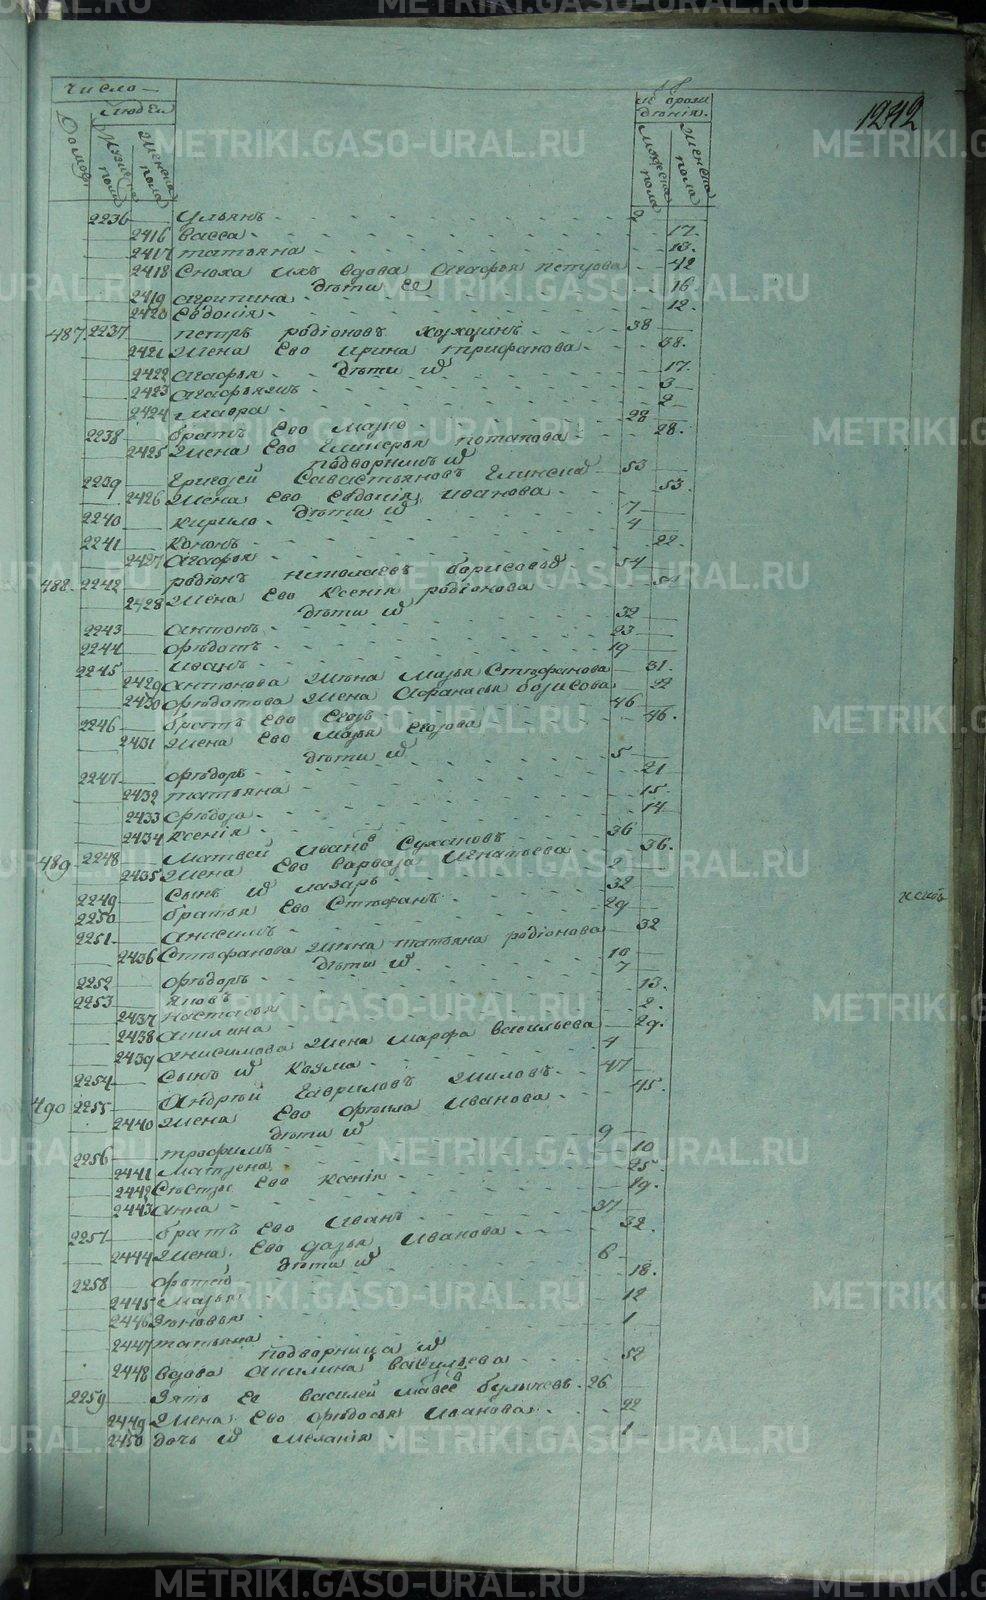 METRIKI.GASO-URAL.RU
1242
Число
Людей
лѣта рожденія.
Домовъ
Мужеска пола
Женска пола
Мужеска пола
Женска пола
2236 Ульянъ 2
2416 Васса 17
2417 Татьяна 13
2418 Сноха ихъ вдова Агафья Петрова 42
дѣти ее
2419 Агрипина 16
2420 Евдокія 12
487 2237 Петръ Родіоновъ 38
2421 Жена Ево Ирина Трифанова 38
дѣти
2422 Агафья 17
2423 3
2424 Мавра 2
2238 братъ Ево 28
2425 Жена Ево Гликерья Потапова 28
2239 Григорей Савастьяновъ 53
2426 Жена Ево Евдокія Иванова 53
дѣти
2240 Кирило 7
2241 Кононъ 4
2427 Агафья 22
488 2242 Родіонъ Николаевъ 54
2428 Жена Ево Ксенія Родіонова 54
дѣти
2243 Антонъ 32
2244 Ѳедотъ 23
2245 Иванъ 19
2429 Антонова Жена Марья Стефанова 31
2430 Ѳедотова Жена Афанасья Борисова 22
2246 братъ Ево Егоръ 46
2431 Жена Ево Марья Егорова 46
дѣти
2247 Ѳедоръ 5
2432 Татьяна 21
2433 Ѳедора 15
2434 Ксенія 14
489 2248 Матвей Иванов Сухановъ 36
2435 Жена Ево Варвара Игнатьева 36
2249 Сынъ Лазарь 2
2250 братья Ево Стефанъ 32
2251 Анисимъ 29
2436 Стефанова Жена Татьяна Родіонова 32
дѣти
2252 Ѳедоръ 10
2253 Яковъ 7
2437 Настасья 13
2438 Акилина 2
2439 Анисимова Жена Марфа Васильева 29
2254 Сынъ Козма 4
490 2255 Андрей Гавриловъ Шиловъ 47
2440 Жена Ево Ѳекла Иванова 45
дѣти
2256 Трофимъ 9
2441 Матрена 10
2442 Сестры Ево Ксенія 25
2443 Анна 19
2257 братъ Ево Иванъ 37
2444 Жена Ево Дарья Иванова 32
дѣти
2258 6
2445 Марья 18
2446 Зиновья 12
2447 Татьяна 1
подворница
2448 вдова Акилина Васильева 52
2259 Зять Ее Василей 26
2449 Жена Ево Ѳедосья Иванова 22
2450 дочь Меланія 1